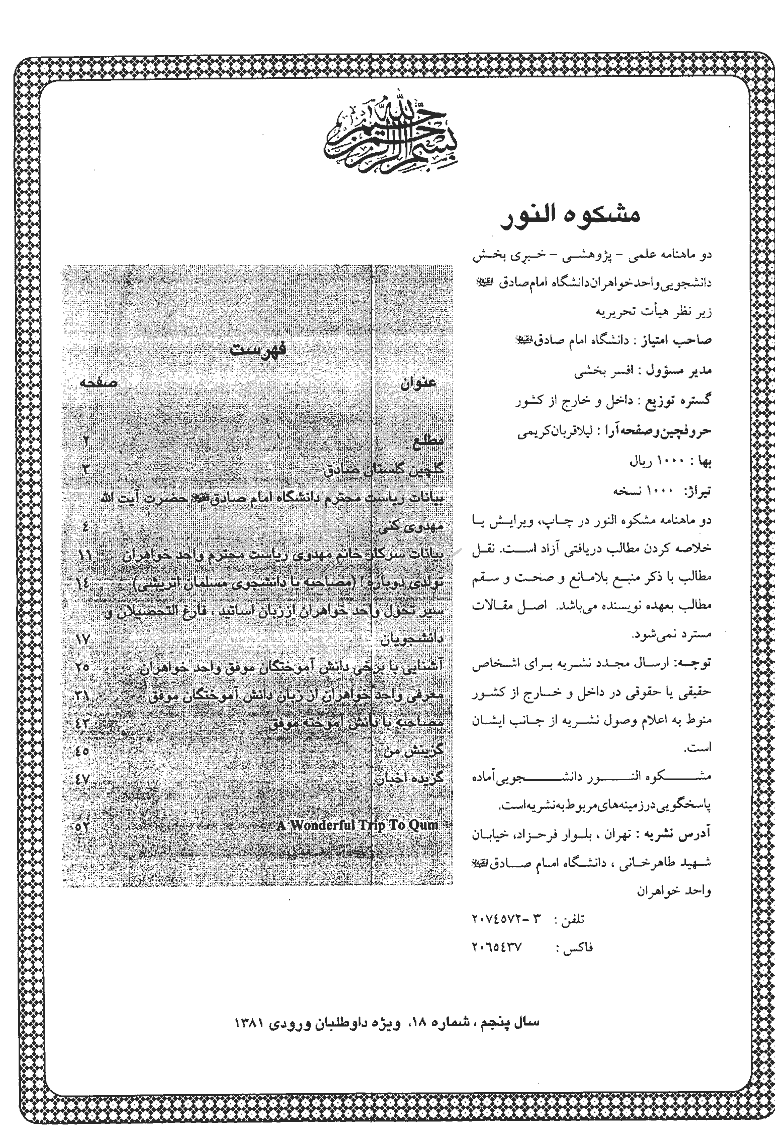 بسم الله الرحمن الرحیم
مشکوه النور
دو ماهنامه علمی - پژوهشی - خبری بخش
دانشجویی واحد خواهران دانشگاه امام صادق
زیر نظر هیأت تحریریه
صاحب امتیاز : دانشگاه امام صادق
مدیر مسؤول : افسر بخشی
گستره توزیع : داخل و خارج از کشور
حروفچین و صفحه آرا : لیلا قربان کریمی
بها : ۱۰۰۰ ریال
تیراژ: ۱۰۰۰ نسخه
دو ماهنامه مشکوه النور در چاپ، ویرایش یا
خلاصه کردن مطالب دریافتی آزاد است. نقل
مطالب با ذکر منبع بلامانع و صحت و سقم
مطالب بعهده نویسنده می‌باشد. اصل مقالات
مسترد نمی‌شود.
توجه: ارسال مجدد نشریه برای اشخاص
حقیقی یا حقوقی در داخل و خارج از کشور
منوط به اعلام وصول نشریه از جانب ایشان
است.
مشکوه النور دانشجویی آماده
پاسخگویی در زمینه‌های مربوط به نشریه است.
آدرس نشریه : تهران ، بلوار فرحزاد، خیابان
شهید طاهرخانی ، دانشگاه امام صادق
واحد خواهران
تلفن : ۳ -۲۰۷٤۵۷۲
فاکس : ۲۰٦۵٤۳۷
فهرست
عنوان صفحه
مطلع ۲
گلچین گلستان صادق ۳
بیانات ریاست محترم دانشگاه امام صادق حضرت آیت الله
مهدوی کنی ٤
بیانات سرکار خانم مهدوی ریاست محترم واحد خواهران ۱۱
تولدی دوباره! (مصاحبه با دانشجوی مسلمان اتریشی) ۱٤
سیر تحول واحد خواهران از زبان اساتید ، فارغ التحصیلان و
دانشجویان ۱۷
آشنایی با برخی دانش آموختگان موفق واحد خواهران ۲۵
معرفی واحد خواهران از زبان دانش آموختگان موفق ۳۱
مصاحبه با دانش آموخته موفق ٤۳
گزینش من ٤۵
گزیده اخبار ٤۷
A Wonderful Trip To Qum ۵۲
سال پنجم ، شماره ۱۸، ویژه داوطلبان ورودی ۱۳۸۱